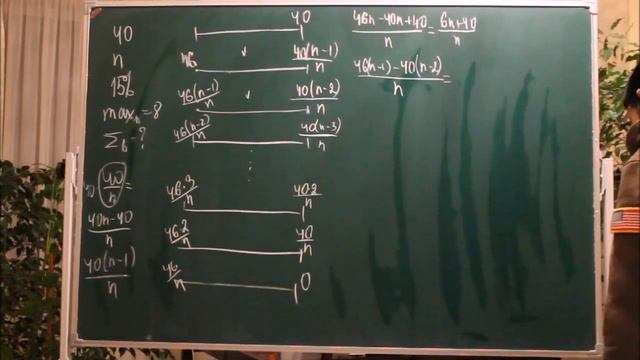 40
n
15%
maxₙ=8
Σ₆ - ?
40 - (40/n) =
(40n-40)/n
40(n-1)/n
40
46 40(n-1)/n
46(n-1)/n 40(n-2)/n
46(n-2)/n 40(n-3)/n
⋮
46·3/n 40·2/n
46·2/n 40/n
46/n 0
(46n-40n+40)/n = (6n+40)/n
(46(n-1)-40(n-2))/n =